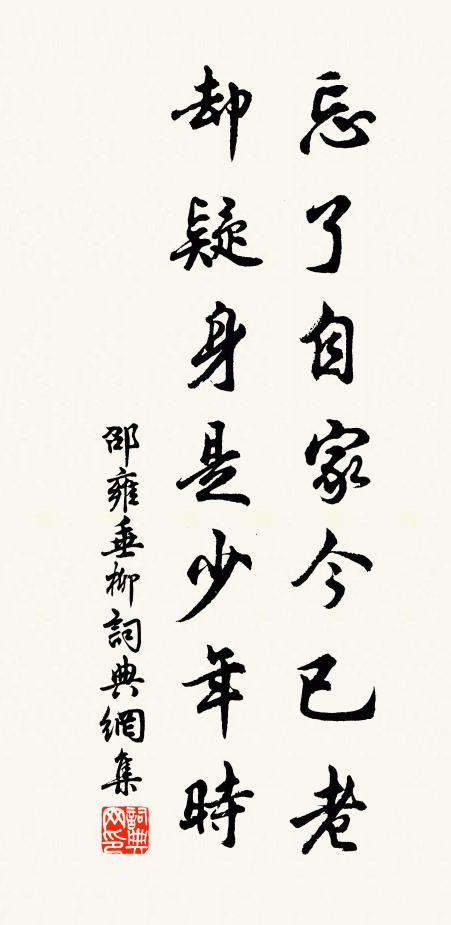 忘了自家今已老
却疑身是少年時
邵雍垂柳詞典網集
詞典網印